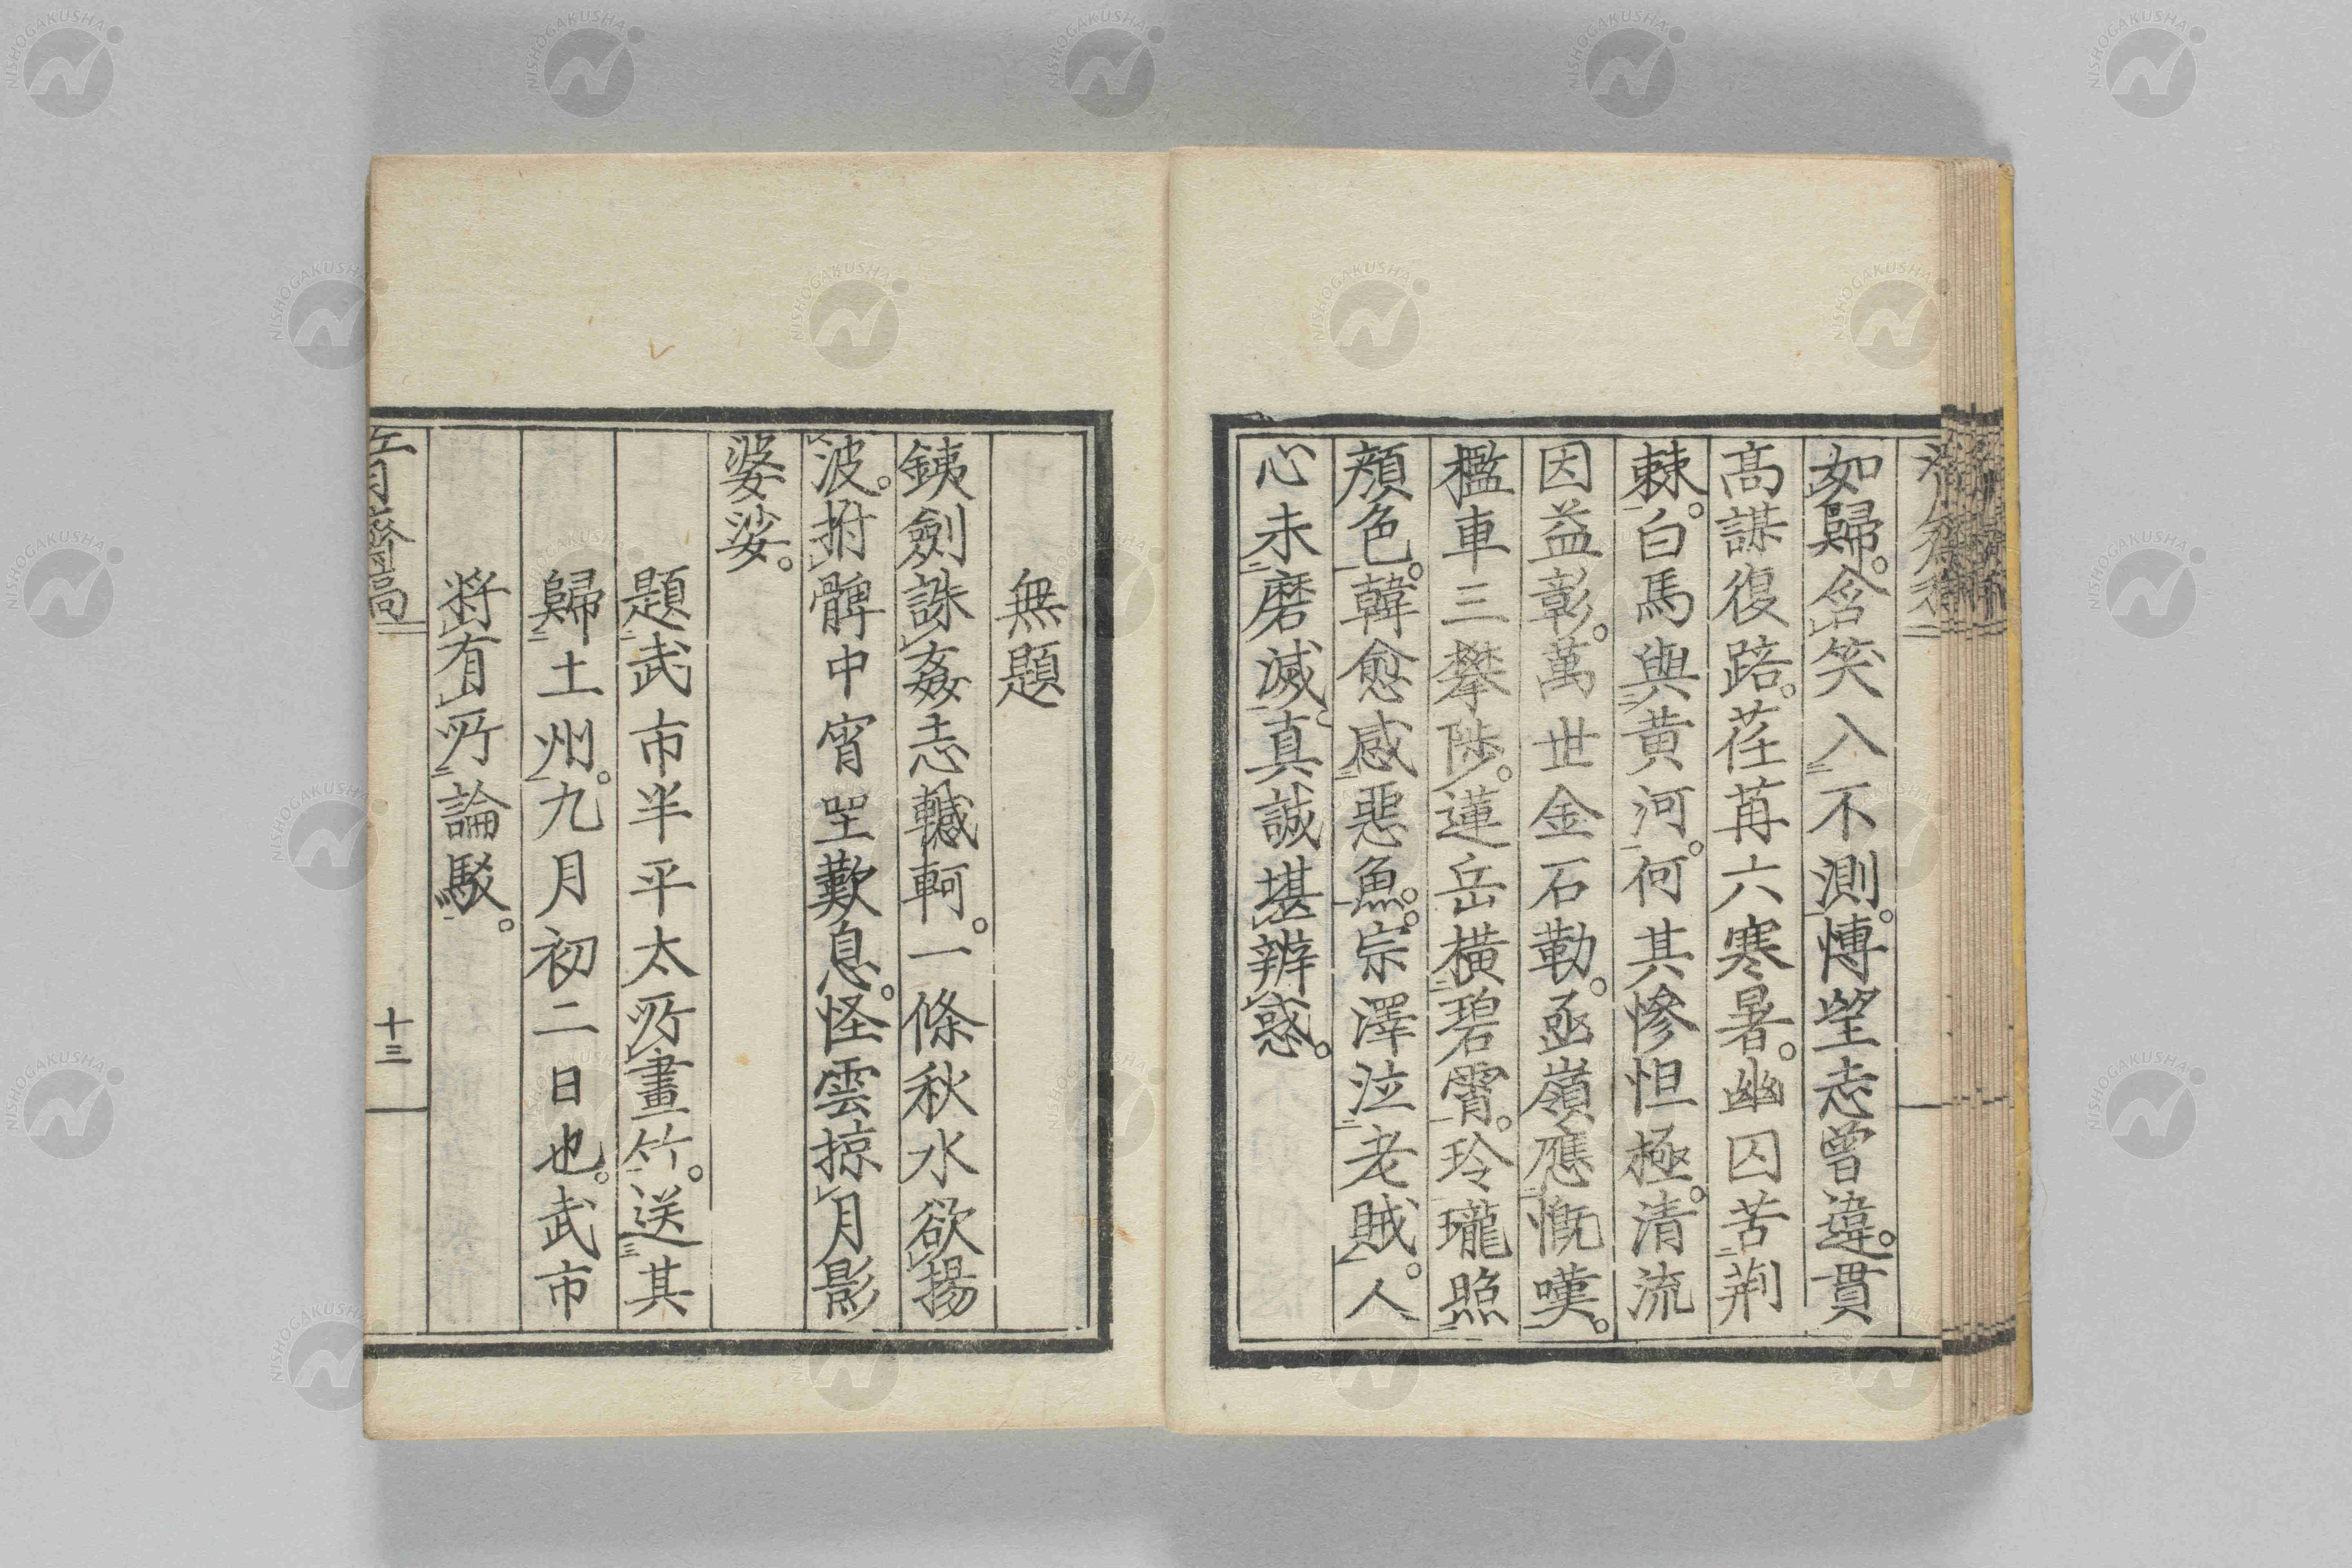 如歸。含笑入不測。慱望志曾違。貫
高謀復踣。荏苒六寒暑。幽囚苦荊
棘。白馬與黄河。何其慘怛極。清流
因益彰。萬世金石勒。函嶺應慨嘆。
檻車三攀陟。蓮岳橫碧霄。玲瓏照
顏色。韓愈感惡魚。宗澤泣老賊。人
心未磨滅。真誠堪辨惑。
無題
銕劍誅姦志轗軻。一條秋水欲揚
波。拊髀中宵坐歎息。怪雲掠月影
婆娑。
題武市半平太所畫竹。送其
歸土州。九月初二日也。武市
將有所論駁。
十三
NISHOGAKUSHA